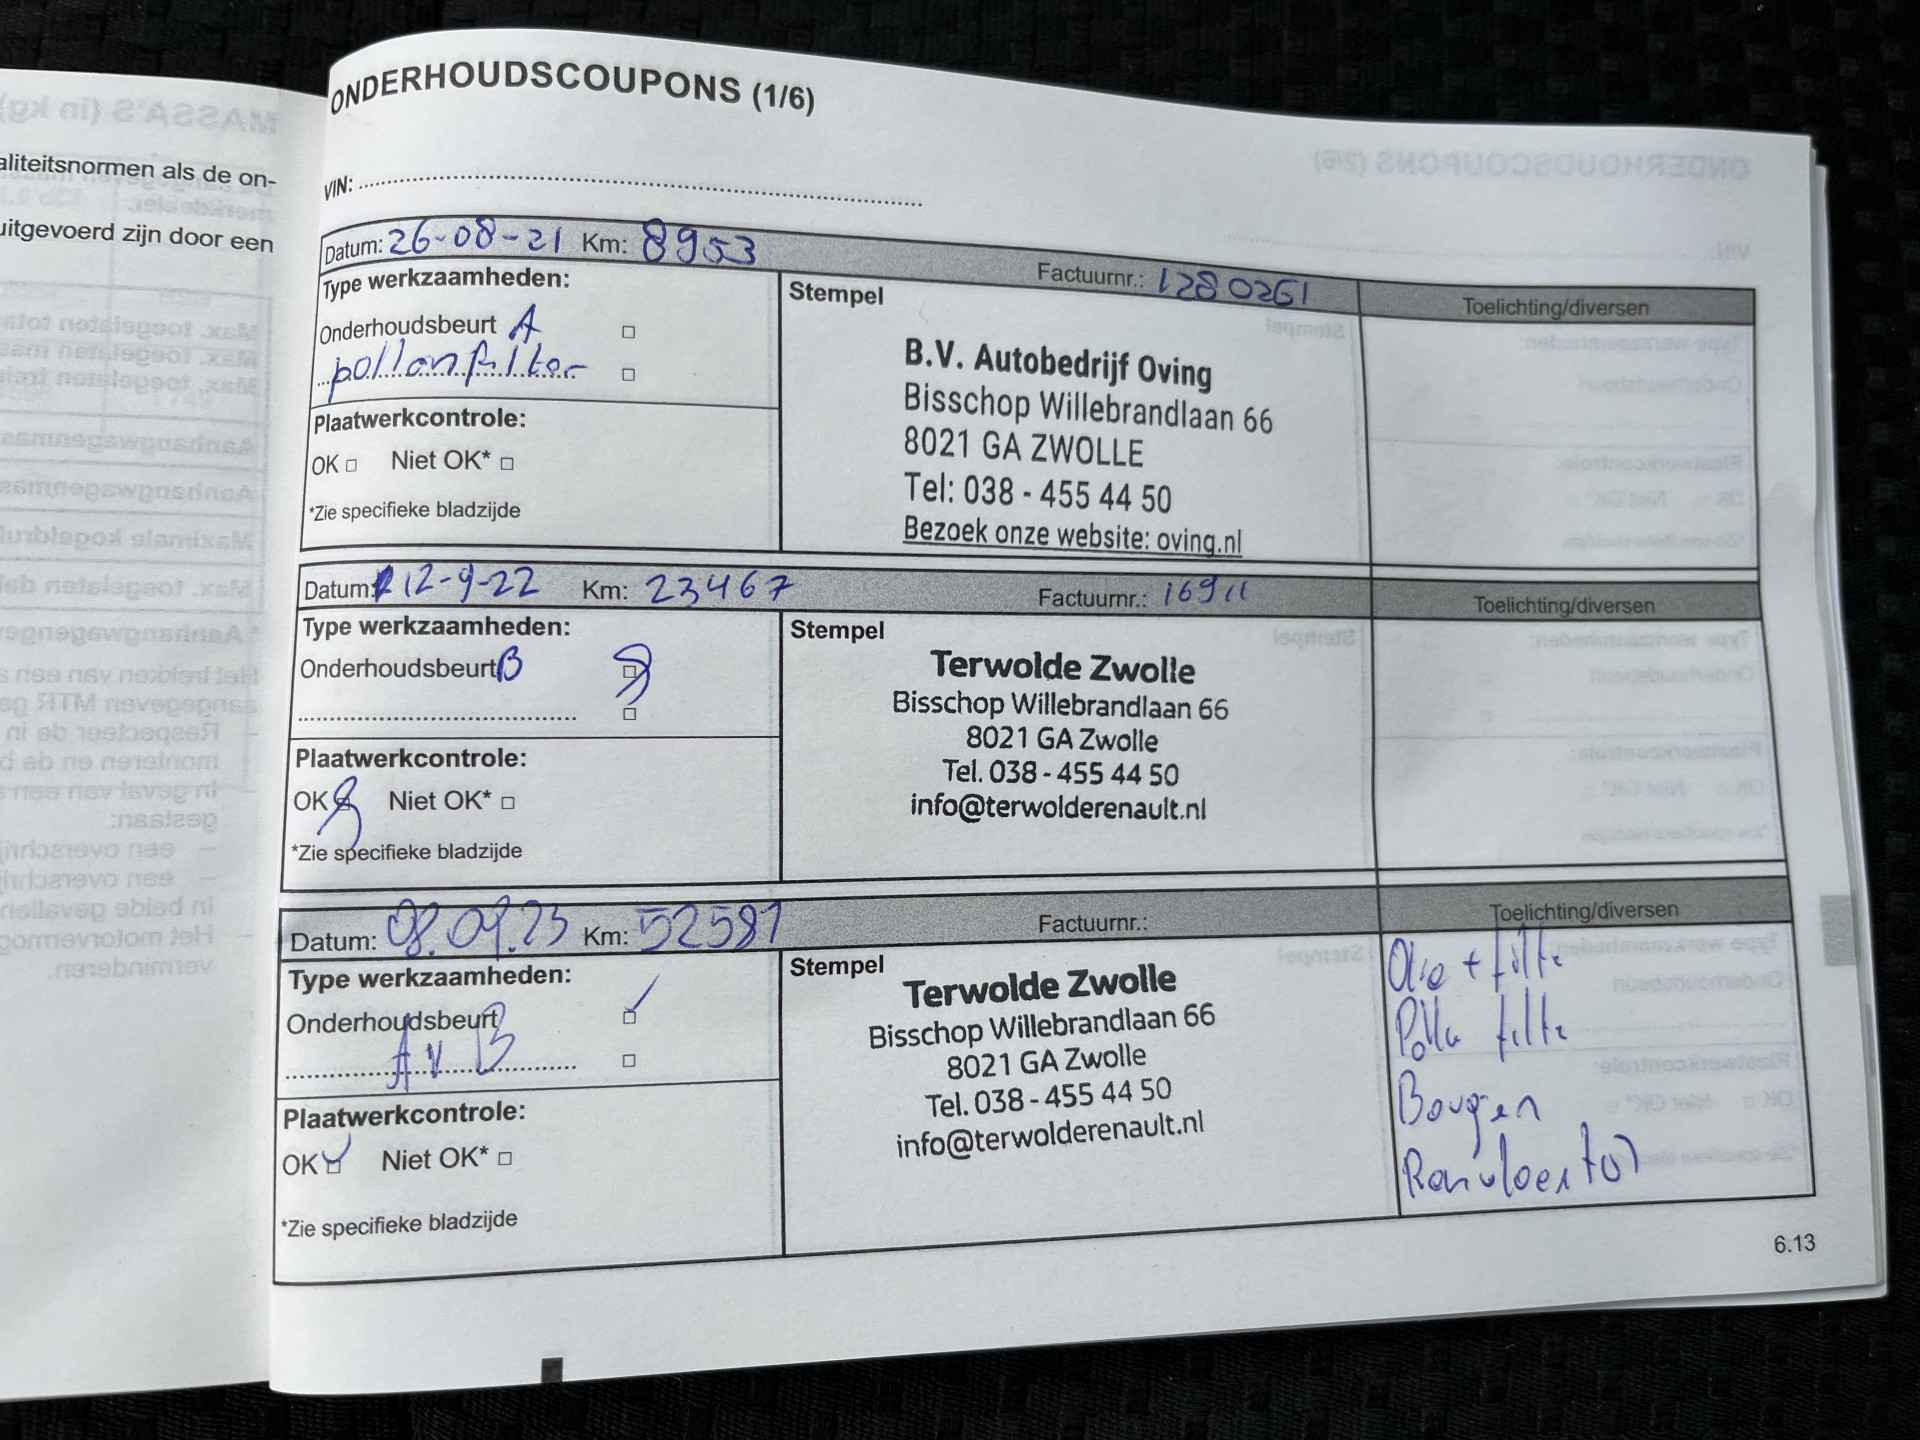 aliteitsnormen als de on-
uitgevoerd zijn door een
ONDERHOUDSCOUPONS (1/6)
VIN:
Datum: 26-08-21 Km: 8953 Factuurnr.: 1280261 Toelichting/diversen
Type werkzaamheden:
Onderhoudsbeurt A
pollenfilter
Plaatwerkcontrole:
OK Niet OK*
*Zie specifieke bladzijde
Stempel
B.V. Autobedrijf Oving
Bisschop Willebrandlaan 66
8021 GA ZWOLLE
Tel: 038 - 455 44 50
Bezoek onze website: oving.nl
Datum: 12-9-22 Km: 23467 Factuurnr.: 16911 Toelichting/diversen
Type werkzaamheden:
Onderhoudsbeurt B
Plaatwerkcontrole:
OK Niet OK*
*Zie specifieke bladzijde
Stempel
Terwolde Zwolle
Bisschop Willebrandlaan 66
8021 GA Zwolle
Tel. 038 - 455 44 50
info@terwolderenault.nl
Datum: 08.09.23 Km: 52581 Factuurnr.: Toelichting/diversen
Type werkzaamheden:
Onderhoudsbeurt
A V B
Plaatwerkcontrole:
OK Niet OK*
*Zie specifieke bladzijde
Stempel
Terwolde Zwolle
Bisschop Willebrandlaan 66
8021 GA Zwolle
Tel. 038 - 455 44 50
info@terwolderenault.nl
Olie + filte
Polle filte
Bougen
Remvloeistof
6.13